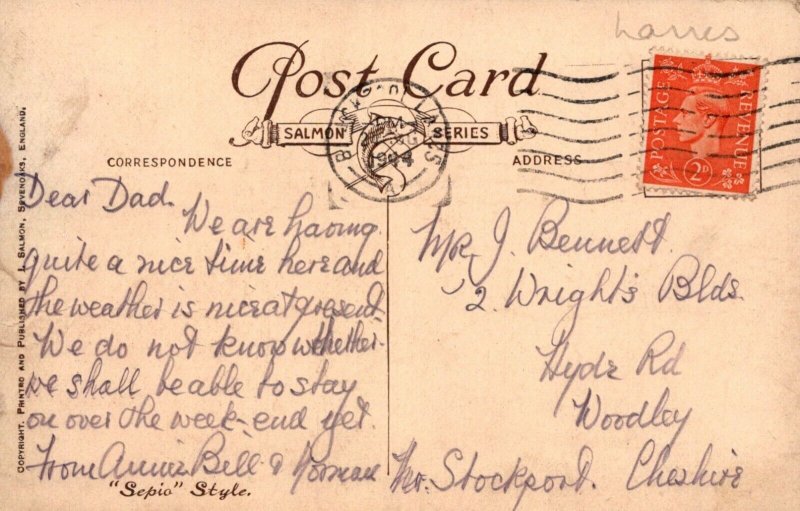 Larres
Post Card
SALMON SERIES
CORRESPONDENCE
ADDRESS
POSTAGE REVENUE
2D
Dear Dad.
We are having
quite a nice time here and
the weather is nice at present.
We do not know whether
we shall be able to stay
on over the week-end yet.
From Annie Bill & Norman
Mr J. Bennett.
2. Wright's Blds.
Hyde Rd
Woodley
Nr. Stockport. Cheshire
"Sepio" Style.
COPYRIGHT. PRINTED AND PUBLISHED BY J. SALMON, SEVENOAKS, ENGLAND.